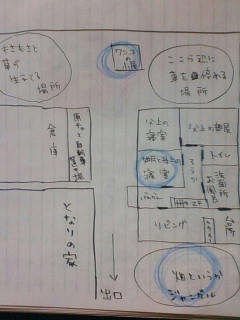 もさもさと
草の
生えてる
場所
ワンコ
の小屋
ここら辺に
車を自停れる
場所
倉庫
原チャと自転車
置き場
父上の
寝室
父上の部屋
トイレ
母上の
寝室
ろうか
洗面所
お風呂
階段 2F
リビング
台所
となりの家
出口
畑というか
ジャングル